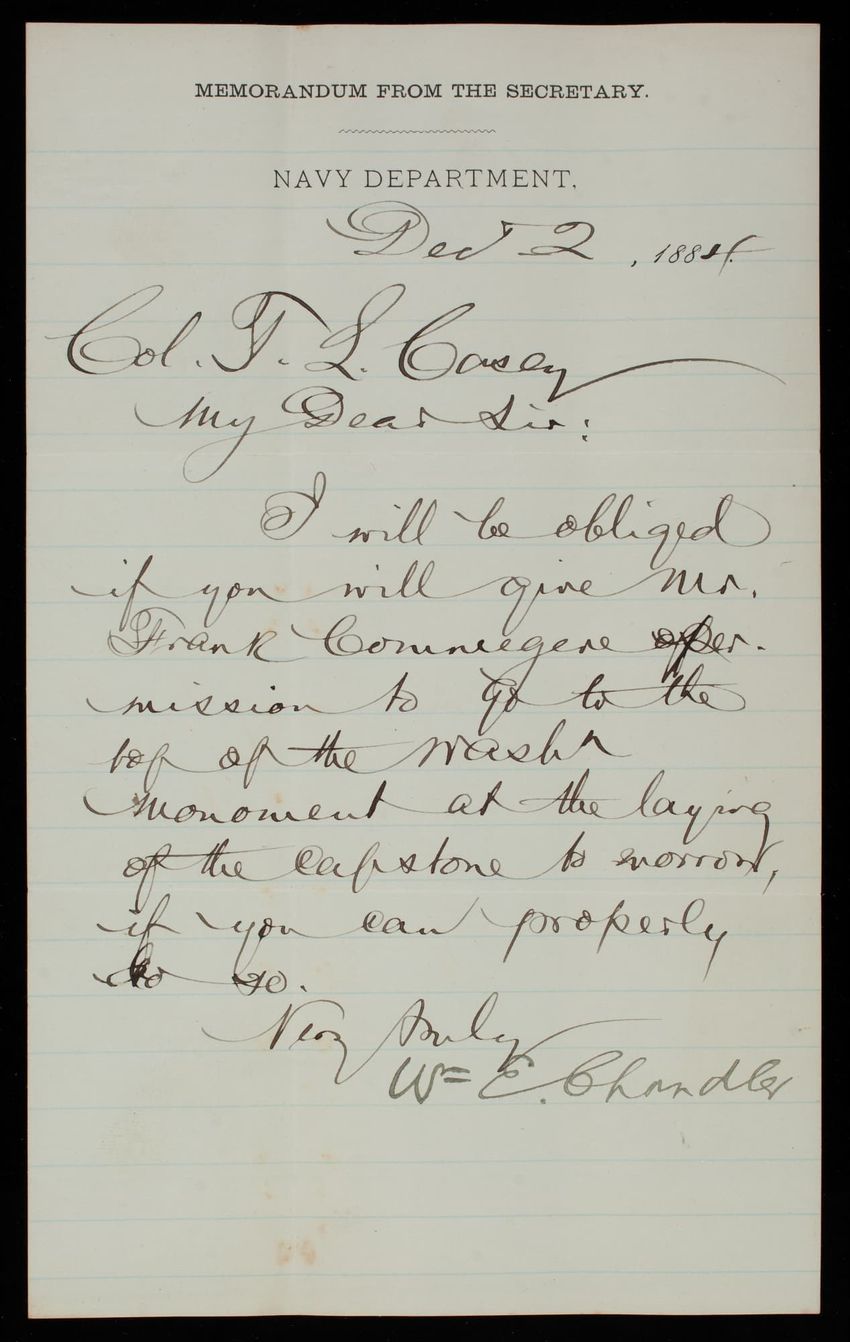 MEMORANDUM FROM THE SECRETARY.
NAVY DEPARTMENT,
Dec 2, 1884.
Col. T. L. Casey
My Dear Sir:
I will be obliged
if you will give Mr.
Frank Commegere per-
mission to go to the
top of the Washn
monoment at the laying
of the capstone to morrow,
if you can properly
do so.
Very truly
Wm E. Chandler